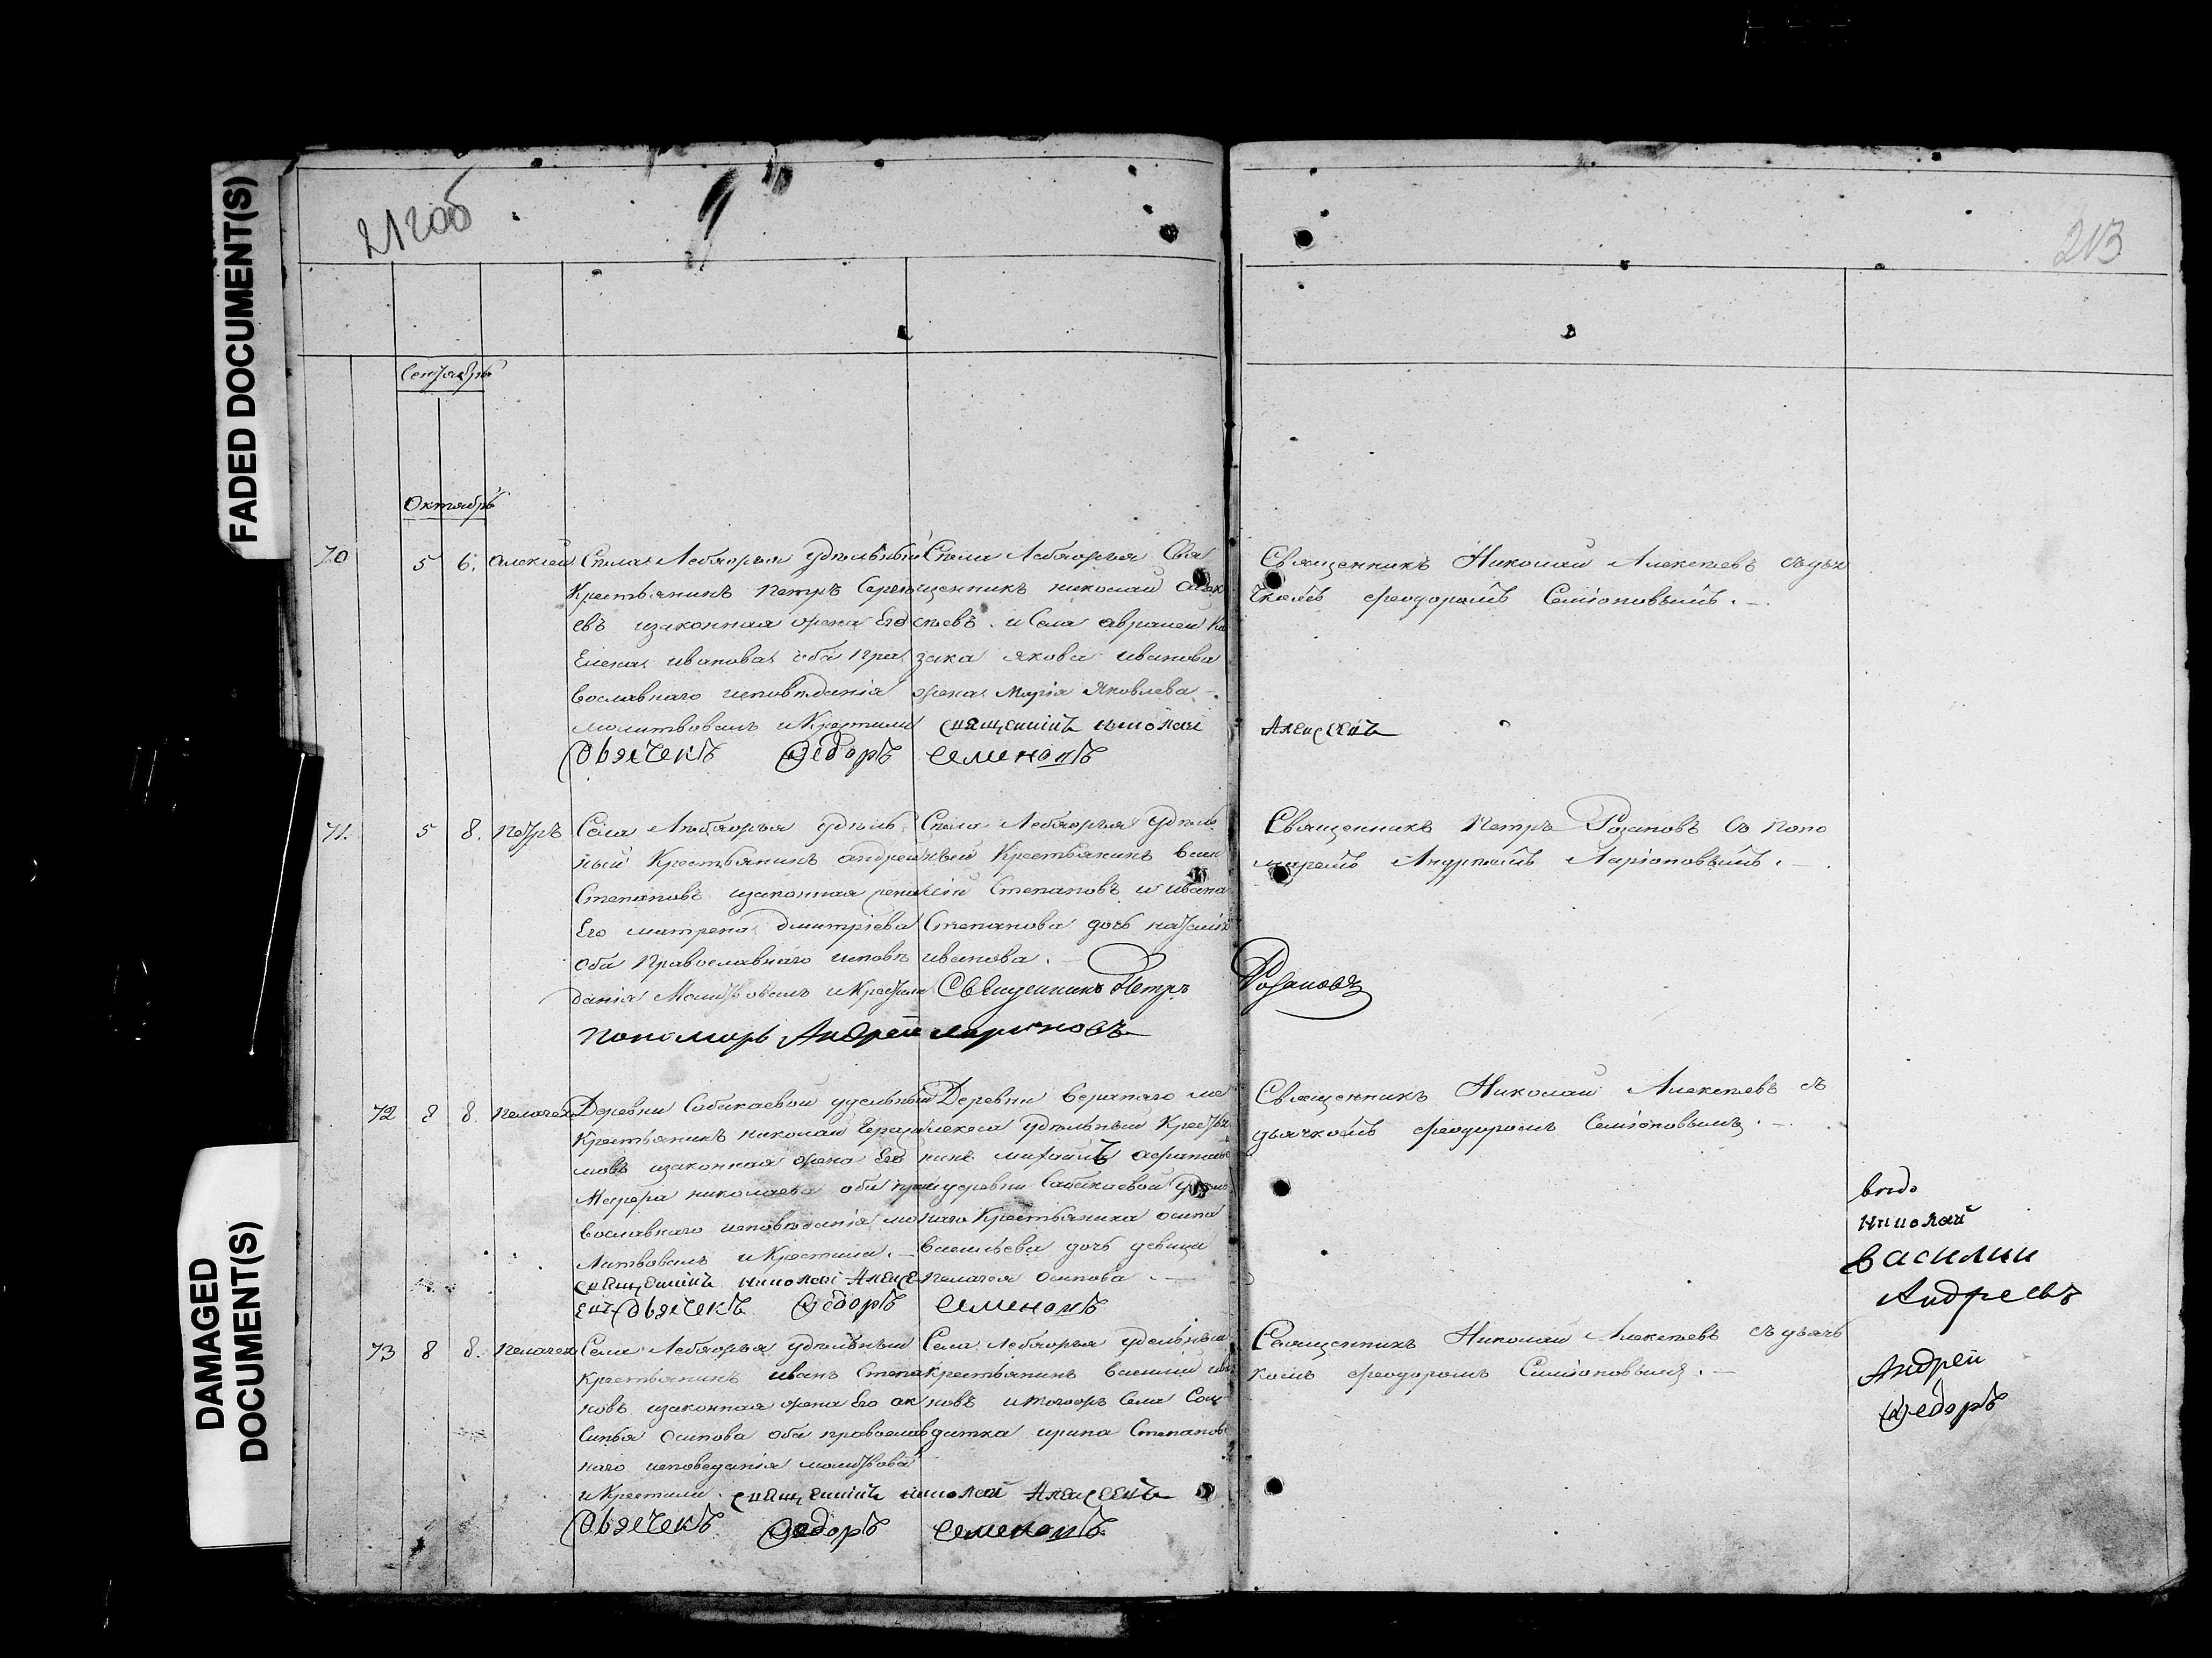 FADED DOCUMENT(S)
DAMAGED
DOCUMENT(S)
212об
213
Сентябрь
Октябрь
70
5
6.
Алексей
Села Лебяжья удѣльный
Крестьянинъ Петръ Сергѣ
евъ изаконная жена Его
Елена Иванова оба пра
вославнаго исповѣданія
молитвовалъ и Крестилъ
Села Лебяжья Свя
щенникъ николай Алек
сѣевъ и Села
зака Якова иванова
жена Марія Яковлева
священникъ николай
Алексеевъ
Дьячекъ Федоръ Семеновъ
Священникъ Николай Алексѣевъ съ дья
чкомъ Феодоромъ Семіоновымъ.
71.
5
8.
Петръ
Села Лебяжья удѣль
ный Крестьянинъ андрей
Степановъ изаконная жена
Его матрена дмитріева
Оба Православнаго исповѣ
данія
Села Лебяжья удѣль
ный Крестьянинъ васи
лій Степановъ и ивана
Степанова дочь
иванова.
Священникъ Петръ
Розановъ
пономарь Андрей Ларионовъ
Священникъ Петръ Розановъ съ Поно
маремъ Андреемъ Ларіоновымъ.
72
8
8.
Пелагея
Деревни Собакаевой удельный
Крестьянинъ николай Герас
имовъ изаконная жена Его
николаева оба пра
вославнаго исповѣданія мо
литвовалъ и Крестилъ.
Деревни верхняго ме
лекеса удѣльный Крестья
нинъ михаилъ
и деревни Сабакаевой удѣль
наго Крестьянина осипа
васильева дочь девица
Пелагея Осипова
священникъ николай Алексе
евъ Дьячекъ Федоръ Семеновъ
Священникъ Николай Алексѣевъ съ
дьячкомъ Феодоромъ Семіоновымъ.
николай
василий
Андреевъ
73
8
8.
Пелагея
Села Лебяжья удѣльный
крестьянинъ иванъ Степа
новъ изаконная жена Его ак
синья Осипова оба православ
наго исповеданія молитвова
и Крестили.
Села Лебяжья удельный
крестьянинъ василий ива
новъ и тогожъ Села Сол
датка ирина Степанов
священникъ николай Алексеевъ
Дьячекъ Федоръ Семеновъ
Священникъ Николай Алексѣевъ съ дьяч
комъ Феодоромъ Семіоновымъ.
Андрей
Федоръ